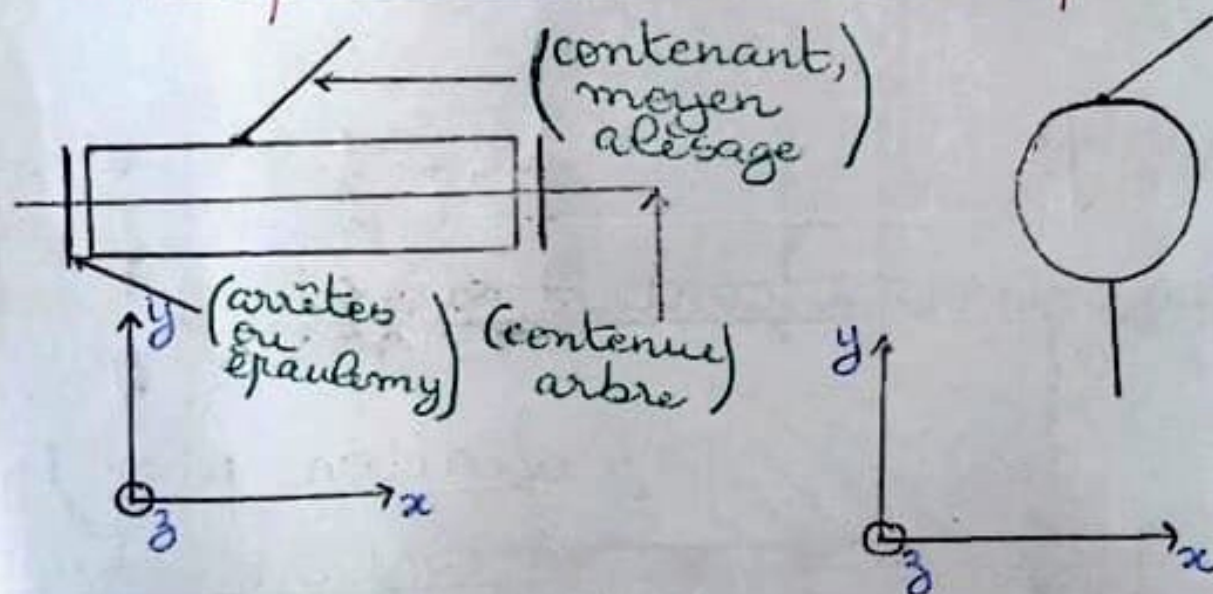 (contenant,
moyen
alésage)
(arrêtes
ou
épaulemy)
(contenue)
arbre)
y
x
z
y
x
z